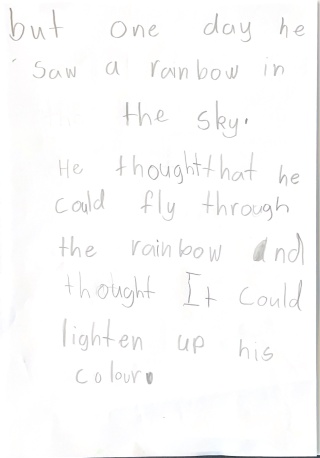 but one day he
saw a rainbow in
the sky.
He thought that he
could fly through
the rainbow and
thought It could
lighten up his
colour.